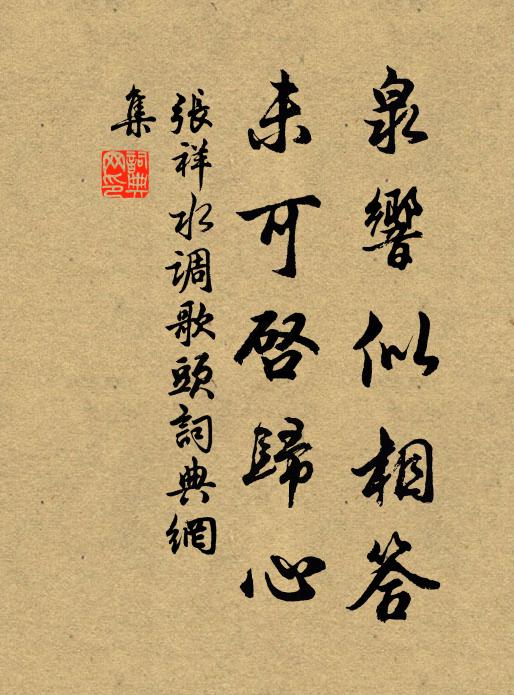 泉響似相答
未可啓歸心
張祥水調歌頭詞典網
集
詞典网印